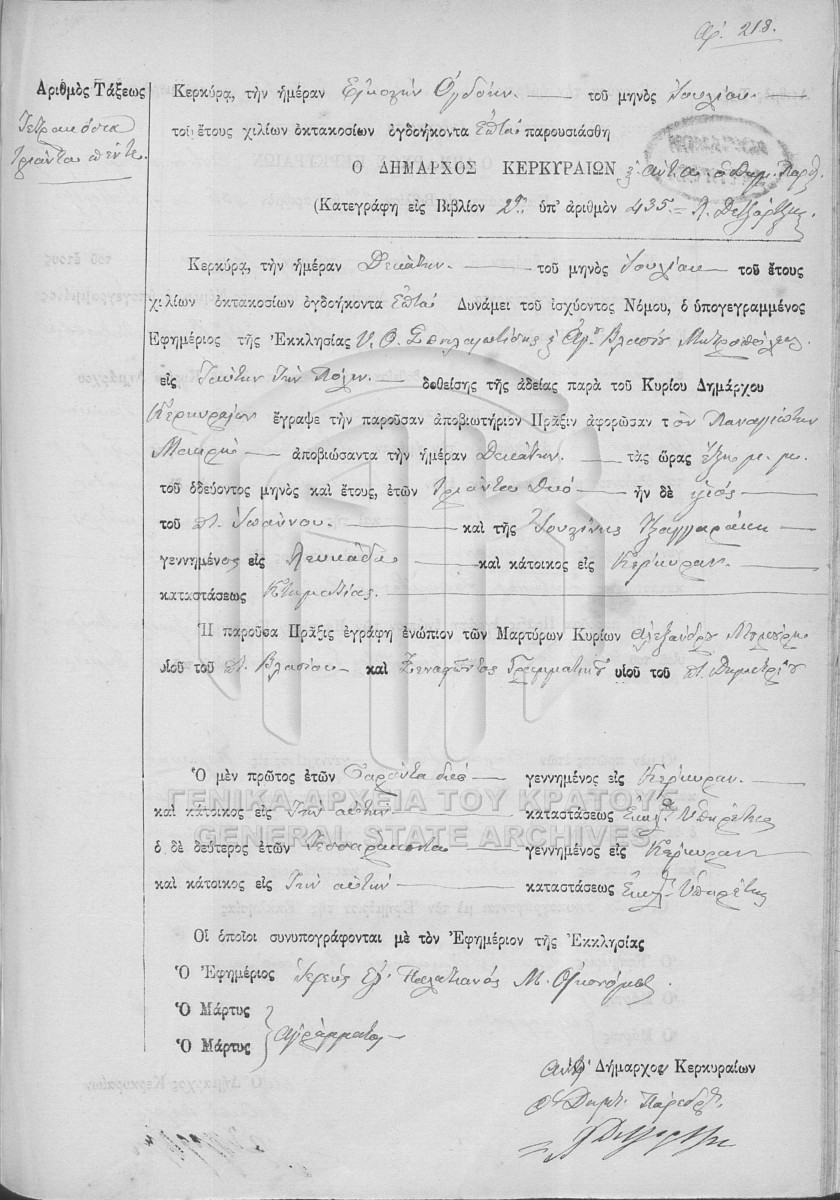 Ἀρ. 218.
Ἀριθμὸς Τάξεως
Τετρακόσια
τριάντα πέντε.
Κερκύρᾳ, τὴν ἡμέραν Εἰκοστὴν Ὀγδόην. τοῦ μηνὸς Ἰουλίου
τοῦ ἔτους χιλίων ὀκτακοσίων ὀγδοήκοντα Ἑπτά παρουσιάσθη
Ο ΔΗΜΑΡΧΟΣ ΚΕΡΚΥΡΑΙΩΝ
(Κατεγράφη εἰς Βιβλίον 2ον ὑπ' ἀριθμὸν 435
Κερκύρᾳ, τὴν ἡμέραν Δεκάτην. τοῦ μηνὸς Ἰουλίου τοῦ ἔτους
χιλίων ὀκτακοσίων ὀγδοήκοντα Ἑπτά Δυνάμει τοῦ ἰσχύοντος Νόμου, ὁ ὑπογεγραμμένος
Ἐφημέριος τῆς Ἐκκλησίας Υ. Θ. Σπηλαιωτίσης & Ἁγ. Βλασίου Μητροπόλεως
εἰς Ταύτην τὴν Πόλιν. δοθείσης τῆς ἀδείας παρὰ τοῦ Κυρίου Δημάρχου
Κερκυραίων ἔγραψε τὴν παροῦσαν ἀποβιωτήριον Πρᾶξιν ἀφορῶσαν τὸν Παναγιώτην
Μακρῆ ἀποβιώσαντα τὴν ἡμέραν Δεκάτην. τὰς ὥρας ἕξη μ. μ.
τοῦ ὁδεύοντος μηνὸς καὶ ἔτους, ἐτῶν Τριάντα δυό ἦν δὲ υἱός
τοῦ π. Ἰωάννου. καὶ τῆς Ἰουλίνης Τζαγγαράκη
γεννημένος εἰς Λευκάδα καὶ κάτοικος εἰς Κέρκυραν.
καταστάσεως Κτηματίας.
Ἡ παροῦσα Πρᾶξις ἐγράφη ἐνώπιον τῶν Μαρτύρων Κυρίων Ἀλεξάνδρου
υἱοῦ τοῦ π. Βλασίου καὶ Ξενοφῶντος Γραμματικοῦ υἱοῦ τοῦ π. Δημητρίου
Ὁ μὲν πρῶτος ἐτῶν Σαράντα δυό γεννημένος εἰς Κέρκυραν.
καὶ κάτοικος εἰς Τὴν αὐτὴν καταστάσεως Ἐκκλ. Ὑπηρέτης
ὁ δὲ δεύτερος ἐτῶν Τεσσαράκοντα γεννημένος εἰς Κέρκυραν
καὶ κάτοικος εἰς Τὴν αὐτὴν καταστάσεως Ἐκκλ. Ὑπηρέτης
Οἱ ὁποῖοι συνυπογράφονται μὲ τὸν Ἐφημέριον τῆς Ἐκκλησίας
Ὁ Ἐφημέριος Ἱερεύς Παλατιανός Μ. Οἰκονόμος.
Ὁ Μάρτυς
Ὁ Μάρτυς
ἀγράμματοι
Ὁ Δήμαρχος Κερκυραίων
ὁ Δημ. Πάρεδρ.
ΓΕΝΙΚΑ ΑΡΧΕΙΑ ΤΟΥ ΚΡΑΤΟΥΣ
GENERAL STATE ARCHIVES